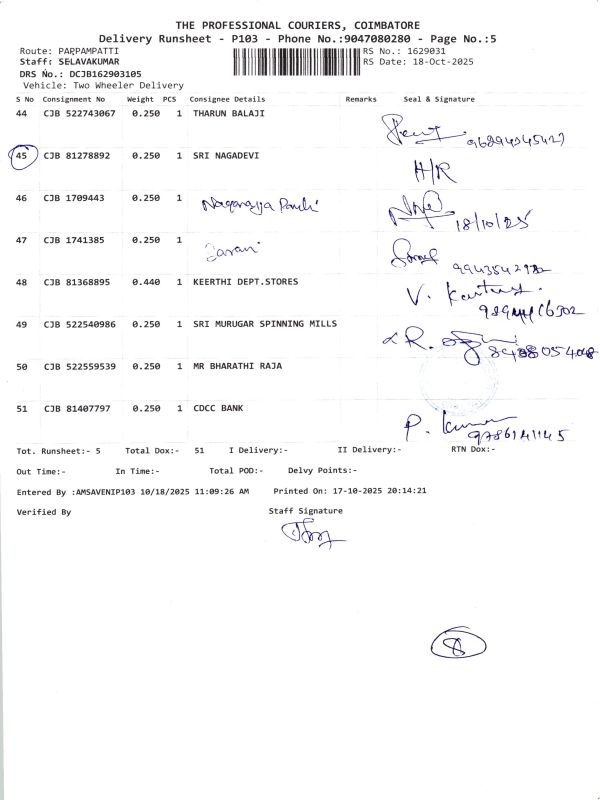 THE PROFESSIONAL COURIERS, COIMBATORE
Delivery Runsheet - P103 - Phone No.:9047080280 - Page No.:5
Route: PAPPAMPATTI RS No.: 1629031
Staff: SELAVAKUMAR RS Date: 18-Oct-2025
DRS No.: DCJB162903105
Vehicle: Two Wheeler Delivery
S No Consignment No Weight PCS Consignee Details Remarks Seal & Signature
44 CJB 522743067 0.250 1 THARUN BALAJI
45 CJB 81278892 0.250 1 SRI NAGADEVI H/R
46 CJB 1709443 0.250 1
18/10/25
47 CJB 1741385 0.250 1
48 CJB 81368895 0.440 1 KEERTHI DEPT.STORES
49 CJB 522540986 0.250 1 SRI MURUGAR SPINNING MILLS
50 CJB 522559539 0.250 1 MR BHARATHI RAJA
51 CJB 81407797 0.250 1 CDCC BANK P. Kumar
9786141145
Tot. Runsheet:- 5 Total Dox:- 51 I Delivery:- II Delivery:- RTN Dox:-
Out Time:- In Time:- Total POD:- Delvy Points:-
Entered By :AMSAVENIP103 10/18/2025 11:09:26 AM Printed On: 17-10-2025 20:14:21
Verified By Staff Signature
8